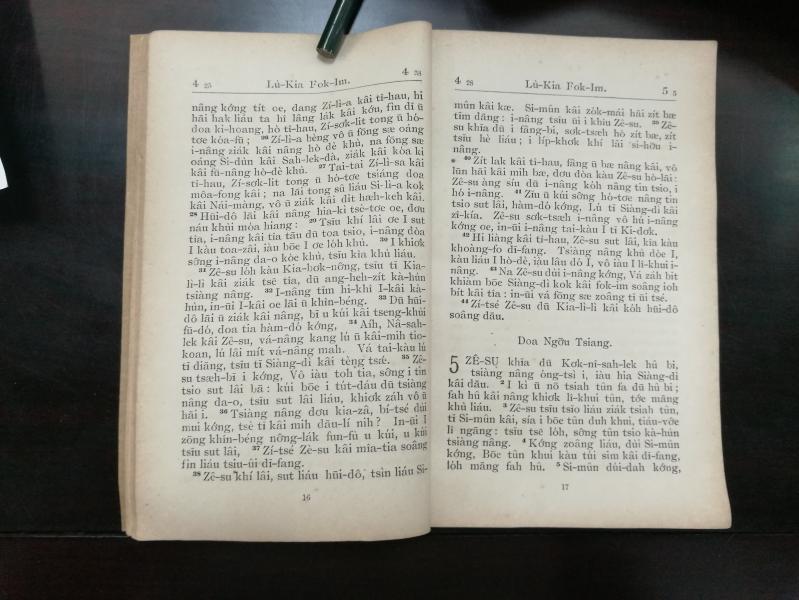 4 25 Lù-Kia Fok-Im. 4 38
nâng kớng tít oe, dang Zí-lì-a kâi tî-hau, hi
hâi hak liáu ta hî lâng lák kâi kớu, fin dī ū
doa ki-hoang, hò tî-hau, Zí-sơk-lit tong ū hó-
tơe kóa-fū; 26 Zí-lì-a bèng vô ū fōng sæ oáng
i-nâng ziák kâi nâng hò dè khù, na fōng sæ
oáng Si-dùn kâi Sah-lek-dà, ziák kâi kòa ki
kâi fū-nâng hò-dè khù. 27 Tai-tai Zí-lì-sa kâi
tî-hau, Zí-sơk-lit tong ū hò-tơe tsiáng doa
môa-fong kâi; na lāi tong sū liáu Si-lì-a kok
kâi Nái-màng, vô ū ziák kâi dit hæh-keh kâi.
28 Hūi-dô lāi kâi nâng hia-ki tsè-tơe oe, dơu
náu khùi móa hiang: 29 Tsīu khí lâi ơe I sut
tia, i-nâng kâi tia tău dū toa tsio, i-nâng dòa
I kàu toa-zāi, iàu bōe I ơe lóh khù. 30 I khiơk
sōng i-nâng da-o kóe khù, tsīu kia khù liáu.
31 Zê-su lóh kàu Kia-bơk-nông, tsīu tī Kia-
lì-lì kâi ziák tsē tia, dū ang-heh-zit kà-hùn
tsiàng nâng. 32 I-nâng tīm hi-khì I-kâi kà-
hùn, in-ūi I-kâi oe lāi ū khîn-béng. 33 Dū hūi-
dô lāi ū ziák kâi nâng, bī u kúi kâi tseng-khùi
fū-dó, doa tia hàm-dó kớng, 34 Aih, Nâ-sah-
lek kâi Zê-su, vá-nâng kang lú ū kâi-mih tio-
koan, lú lâi mit vá-nâng mah. Vá tai-kàu lú
tī diāng, tsīu tī Siàng-di kâi tèng tsē. 35 Zê-
su tsæh-bī i kớng, Vô iàu toh tia, sông i tin
tsio sut lâi bā: kúi bōe i tút-dáu dū tsiàng
nâng da-o, tsīu sut lâi liáu, khiơk záh vô ū
hāi i. 36 Tsiàng nâng dơu kia-zâ, bí-tsé dúi
mui kớng, tsē tī kâi mih dău-lí nih? In-ūi I
zōng khîn-béng nơng-lák fun-fù u kúi, u kúi
tsīu sut lâi, 37 Zí-tsé Zê-su kâi mía-tia soâng
fin liáu tsiu-ûi dī-fang.
38 Zê-su khí lâi, sut liáu hūi-dô, tsìn liáu Si-
16
4 28 Lù-Kia Fok-Im. 5 5
mûn kâi kæ. Si-mûn kâi zók-mái hâi zít bæ
tīm dāng: i-nâng tsīu ūi i khîu Zê-su. 39 Zê-
su khīa dū i fâng-bí, sơk-tsæh hò zít bæ, zít
tsīu hè liáu; i líp-khơk khí lâi si-hōu i-
nâng.
40 Zít lak kâi tî-hau, fāng ū bæ nâng kâi, vô
lūn hāi kâi mih bæ, dơu dòa kàu Zê-su hò-lâi:
Zê-su àng síu dū i-nâng kóh nâng tin tsio, i
hó i-nâng. 41 Zīu ū kúi sōng hò-tơe nâng tin
tsio sut lâi, hàm-dó kớng, Lú tī Siàng-di kâi
zī-kía. Zê-su sơk-tsæh i-nâng vô hú i-nâng
kớng oe, in-ūi i-nâng tai-kàu I tī Ki-dơk.
42 Hi liàng kâi tî-hau, Zê-su sut lâi, kia kàu
khoàng-fo dī-fang. Tsiàng nâng khù dòe I,
kàu liáu I hò-dè, iàu lâu dó I, vô iàu I lī-khui i-
nâng. 43 Na Zê-su dúi i-nâng kớng, Vá záh bit
khiàm bōe Siàng-di kok kâi fok-im soâng ioh
bit kâi tia: in-ūi vá fōng sæ zoâng tī ūi tsé.
44 Zí-tsé Zê-su dū Kia-lì-lì kâi kóh hūi-dô
soâng dău.
Doa Ngơu Tsiang.
5 ZÊ-SU khīa dū Kơk-ni-sah-lek hû bi,
tsiàng nâng òng-tsì i, iàu hia Siàng-di
kâi dău. 2 I ki ū nō tsiah tûn fa dū hû bi;
fah hû kâi nâng khiơk lī-khui tûn, tớe máng
khù liáu. 3 Zê-su tsīu tsio liáu ziák tsiah tûn,
tī Si-mûn kâi, sía i bōe tûn duh khui, tiáu-vớe
lī ngāng: tsīu tsē lóh, sōng tûn tsio kà-hùn
tsiàng nâng. 4 Kớng zoâng liáu, dúi Si-mûn
kớng, Bōe tûn khui kàu tùi sim kâi dī-fang,
lóh máng fah hû. 5 Si-mûn dúi-dah kớng,
17